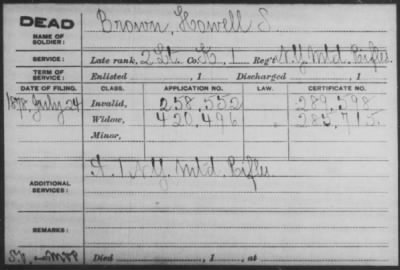 DEAD
NAME OF SOLDIER: Brown, Howell S.
SERVICE: Late rank, 2 Lt. Co. K, 1 Reg't N.Y. Mtd. Rifles.
TERM OF SERVICE: Enlisted , 1 Discharged , 1
DATE OF FILING. CLASS. APPLICATION NO. LAW. CERTIFICATE NO.
1878, July 24 Invalid, 258,552 289,598
Widow, 420,496 285,715
Minor,
ADDITIONAL SERVICES: N.Y. Mtd. Rifles
REMARKS:
Died , 1 , at